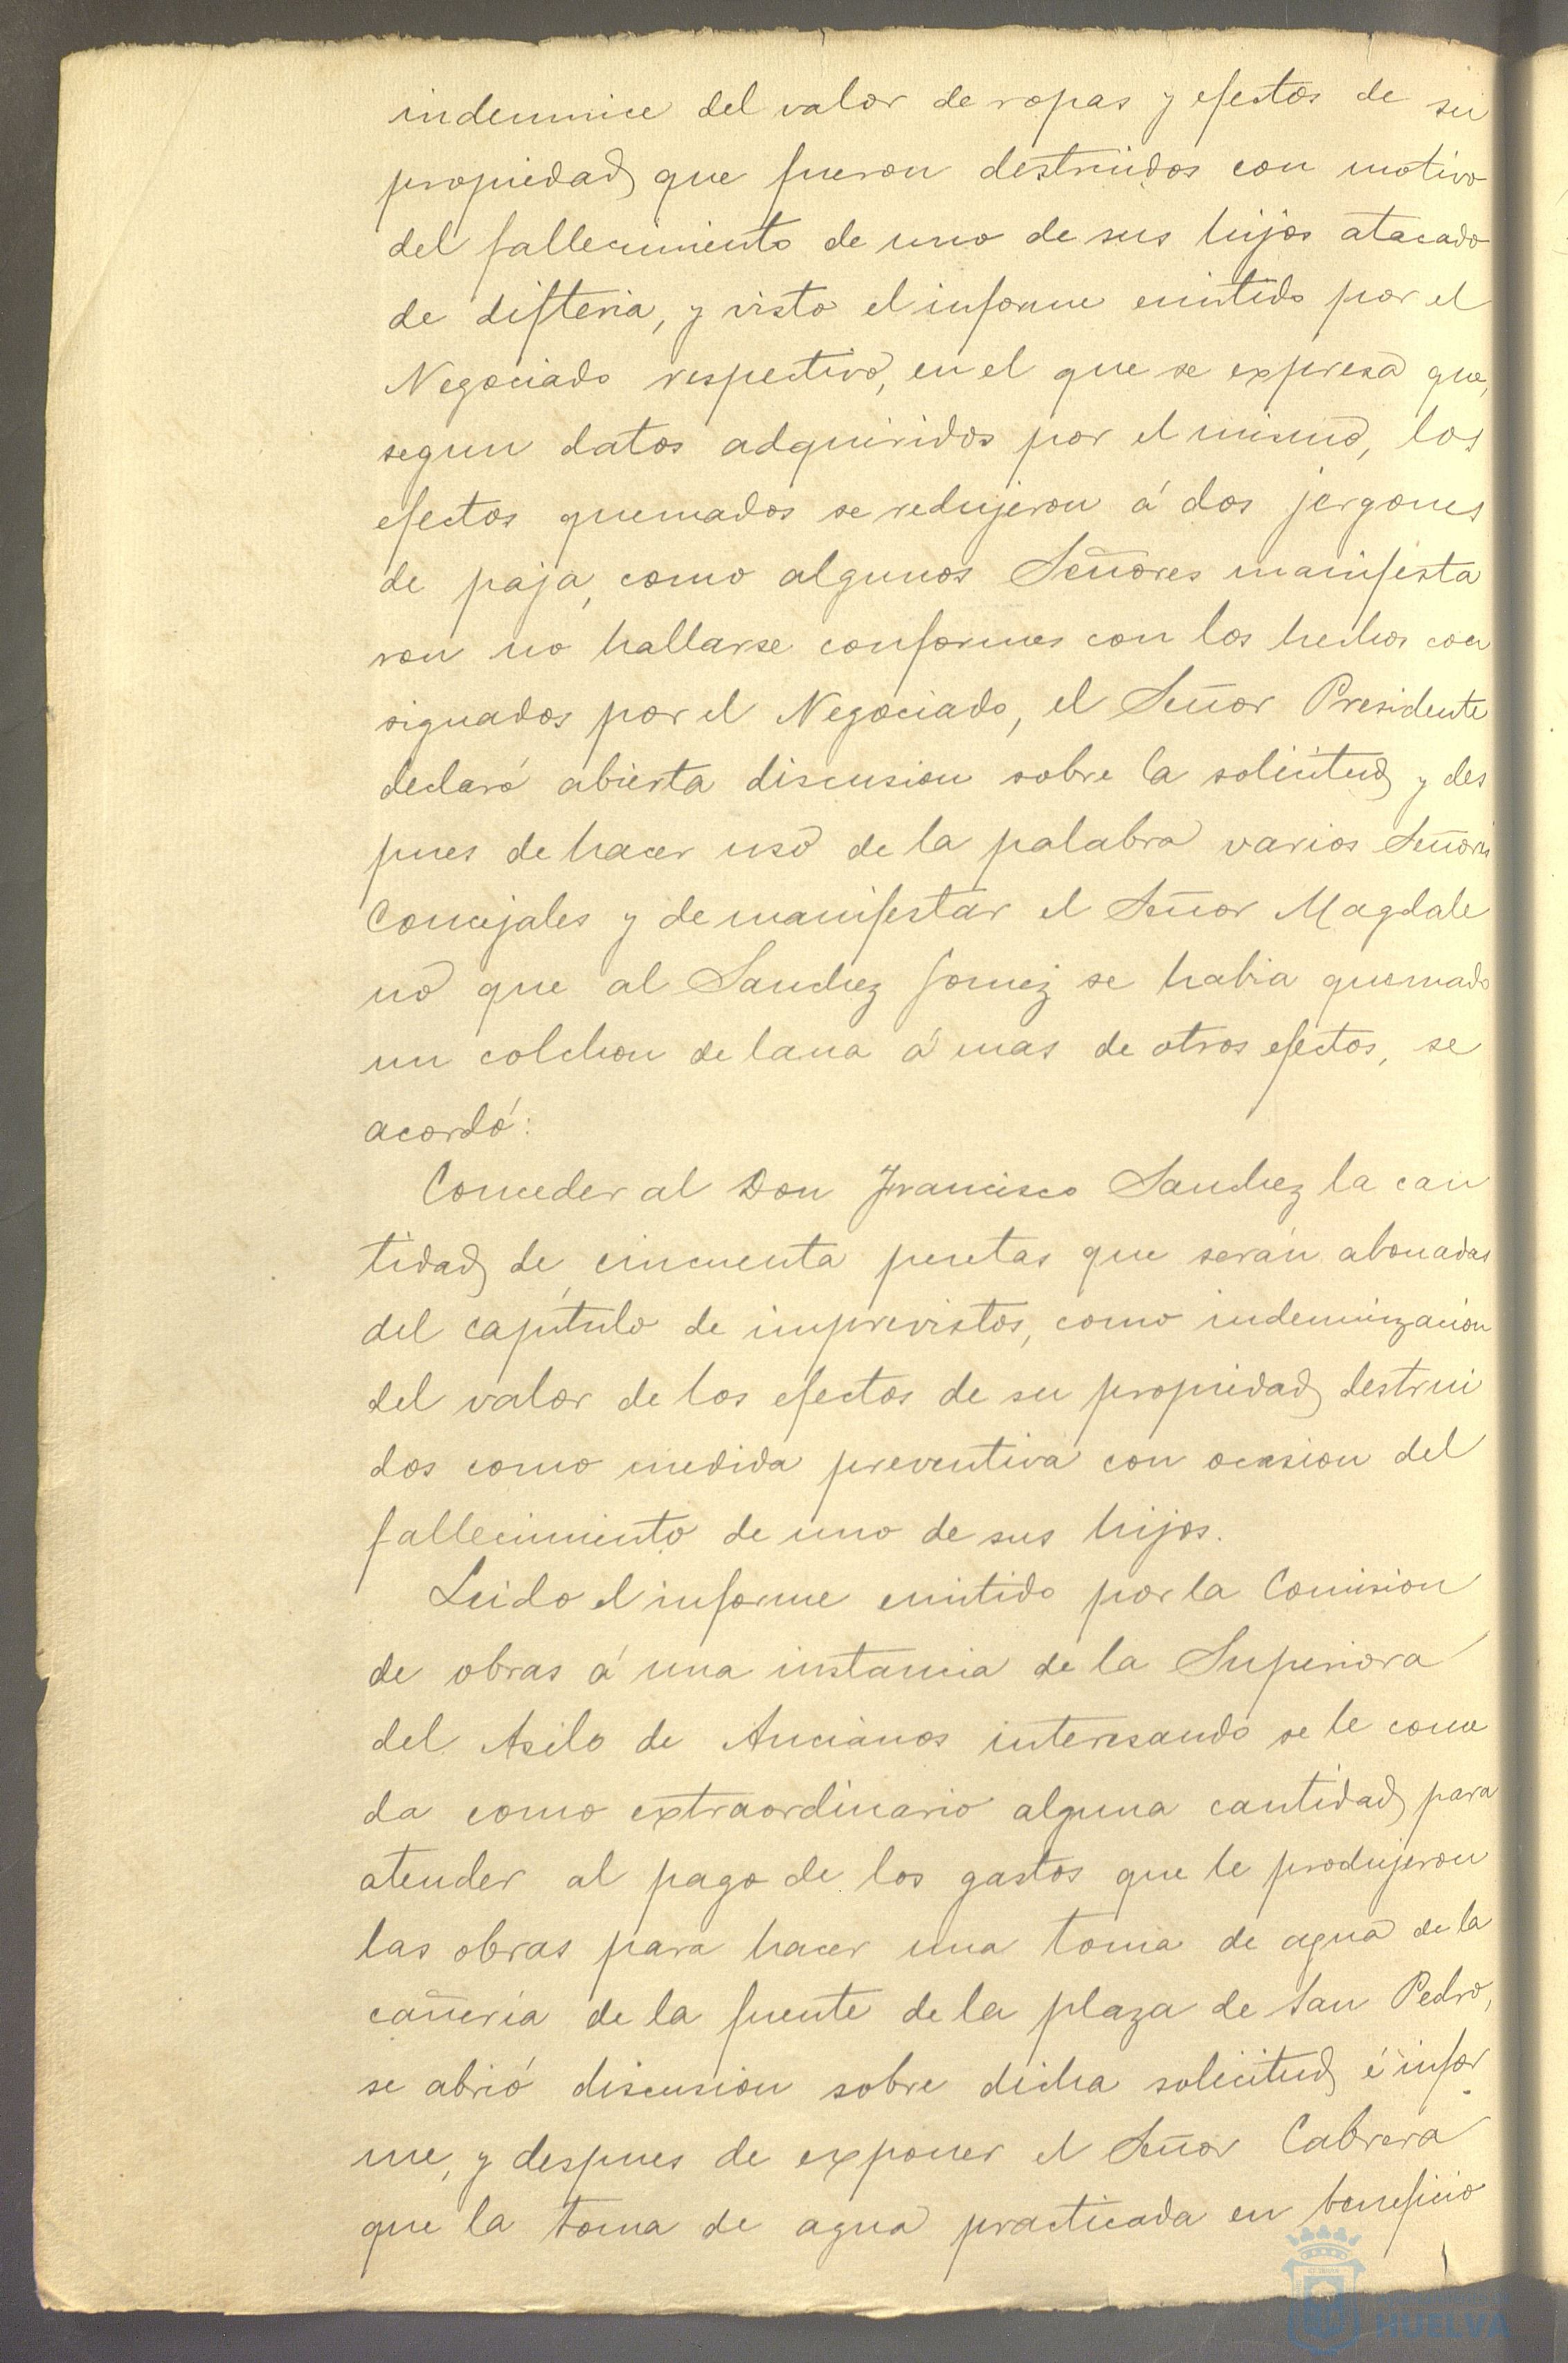 indemnice del valor de ropas y efectos de su
propiedad que fueron destruidos con motivo
del fallecimiento de uno de sus hijos atacado
de difteria, y visto el informe emitido por el
Negociado respectivo, en el que se expresa que,
segun datos adquiridos por el mismo, los
efectos quemados se redujeron á dos jergones
de paja, como algunos Señores manifesta
ron no hallarse conformes con los hechos con
signados por el Negociado, el Señor Presidente
declaró abierta discusion sobre la solicitud y des
pues de hacer uso de la palabra varios Señores
Concejales y de manifestar el Señor Magdale
no que al Sanchez Gomez se habia quemado
un colchon de lana á mas de otros efectos, se
acordó:
Conceder al Don Francisco Sanchez la can
tidad de cincuenta pesetas que serán abonadas
del capítulo de imprevistos, como indemnizacion
del valor de los efectos de su propiedad destrui
dos como medida preventiva con ocasion del
fallecimiento de uno de sus hijos.
Leido el informe emitido por la Comision
de obras á una instancia de la Superiora
del Asilo de Ancianos interesando se le conce
da como extraordinario alguna cantidad para
atender al pago de los gastos que le produjeron
las obras para hacer una toma de agua de la
cañeria de la fuente de la plaza de San Pedro,
se abrió discusion sobre dicha solicitud é infor
me, y despues de exponer el Señor Cabrera
que la toma de agua practicada en beneficio
HUELVA